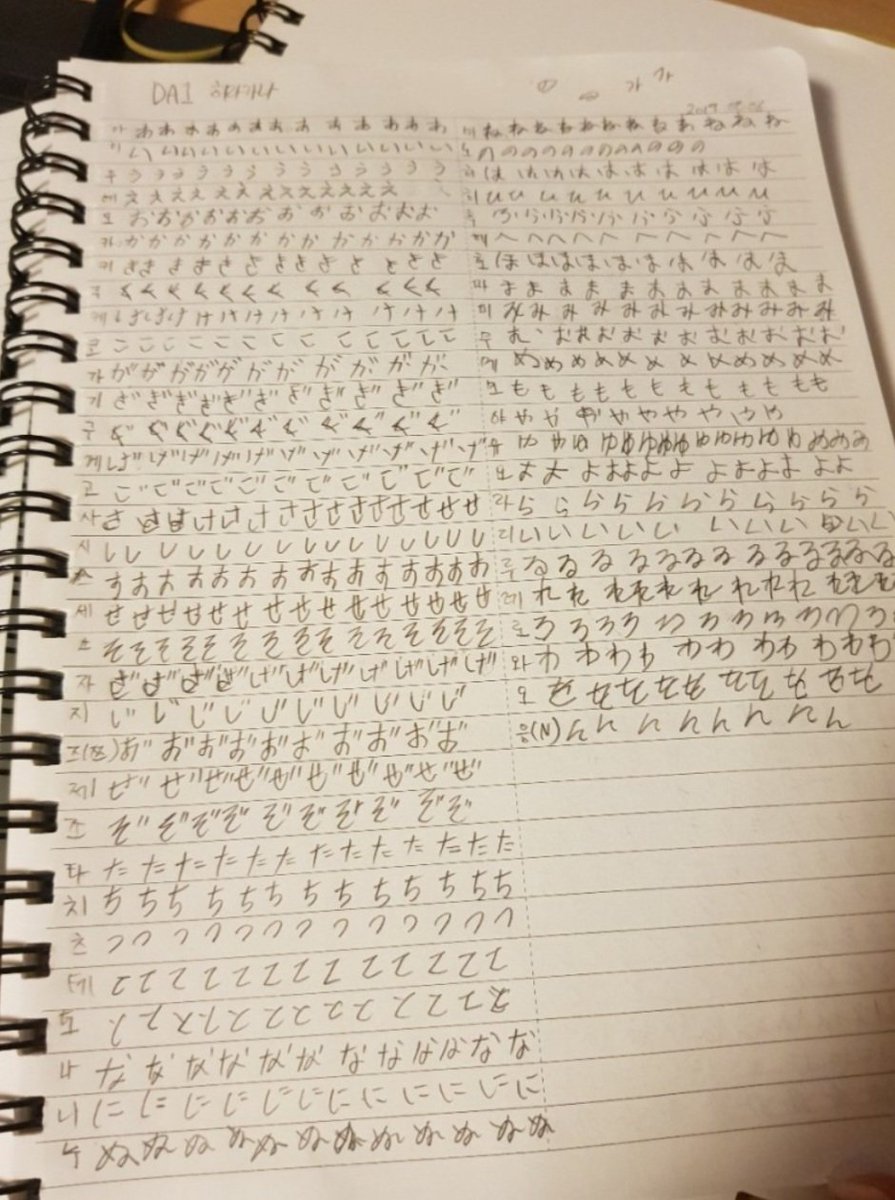 DA1 히라가나
가 가
아 ああああああああああああ
이 いいいいいいいいいいいい
우 うううううううううう
에 えええええええええええ
오 おおかおおおおかおおおお
카 かかかかかかかかかかかか
키 ききききききききききき
くくくくくくくくくくく
케 けけけけけけけけけけ
코 こここここここここここ
가 ががががががががががが
기 ぎぎぎぎぎぎぎぎぎぎ
구 ぐぐぐぐぐぐぐぐぐぐ
게 げげげげげげげげげげげ
고 ごごごごごごごごごごご
사 さささけささささささささささ
시 ししししししししししししし
스 すおおおおおおおすすおおお
세 せせせせせせせせせせせせせ
소 そそそそそそそそそそそそ
자 ざざざざげげげげげげげ
지 じじじじじじじじじ
즈(쯔) おおおおおおおおお
제 ぜぜぜぜぜぜぜぜぜぜ
조 ぞぞぞぞぞぞぞぞぞぞ
타 たたたたたたたたたたた
치 ちちちちちちちちちちち
츠 つつつつつつつつつつつ
테 ててててててててててて
토 とととととととととととと
나 なななななななななななな
니 にににににににににににに
누 ぬぬぬぬぬぬぬぬぬぬぬぬ
네 ねねねねねねねねねねねね
노 ののののののののののの
하 はははははははははは
히 ひひひひひひひひひ
후 ふふふふふふふふふ
헤 へへへへへへへへへ
호 ほほほほほほほほほほ
마 まままままままままままま
미 みみみみみみみみみみみ
무 むむむむむむむむむむむ
메 めめめめめめめめめめめ
모 もももももももももももも
야 ややややややややや
유 ゆゆゆゆゆゆゆゆゆゆゆゆゆゆゆ
요 よよよよよよよよよよよよ
라 らららららららららら
리 いいいいいいいいいいい
루 るるるるるるるるるるるる
레 れれれれれれれれれれれ
로 ろろろろろろろろろろろ
와 わわわわわわわわわわわ
오 をををををををををを
응(N) んんんんんんんん